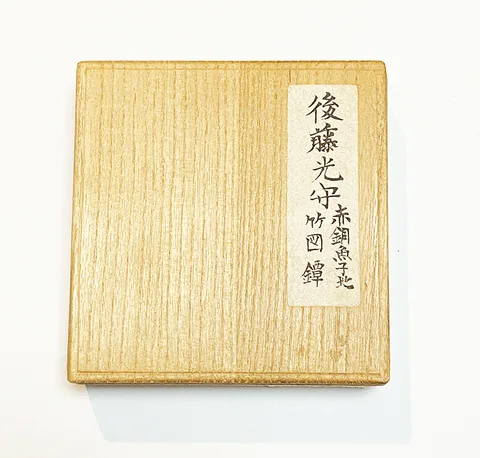 後藤光守
赤銅魚子地
竹図
鐔